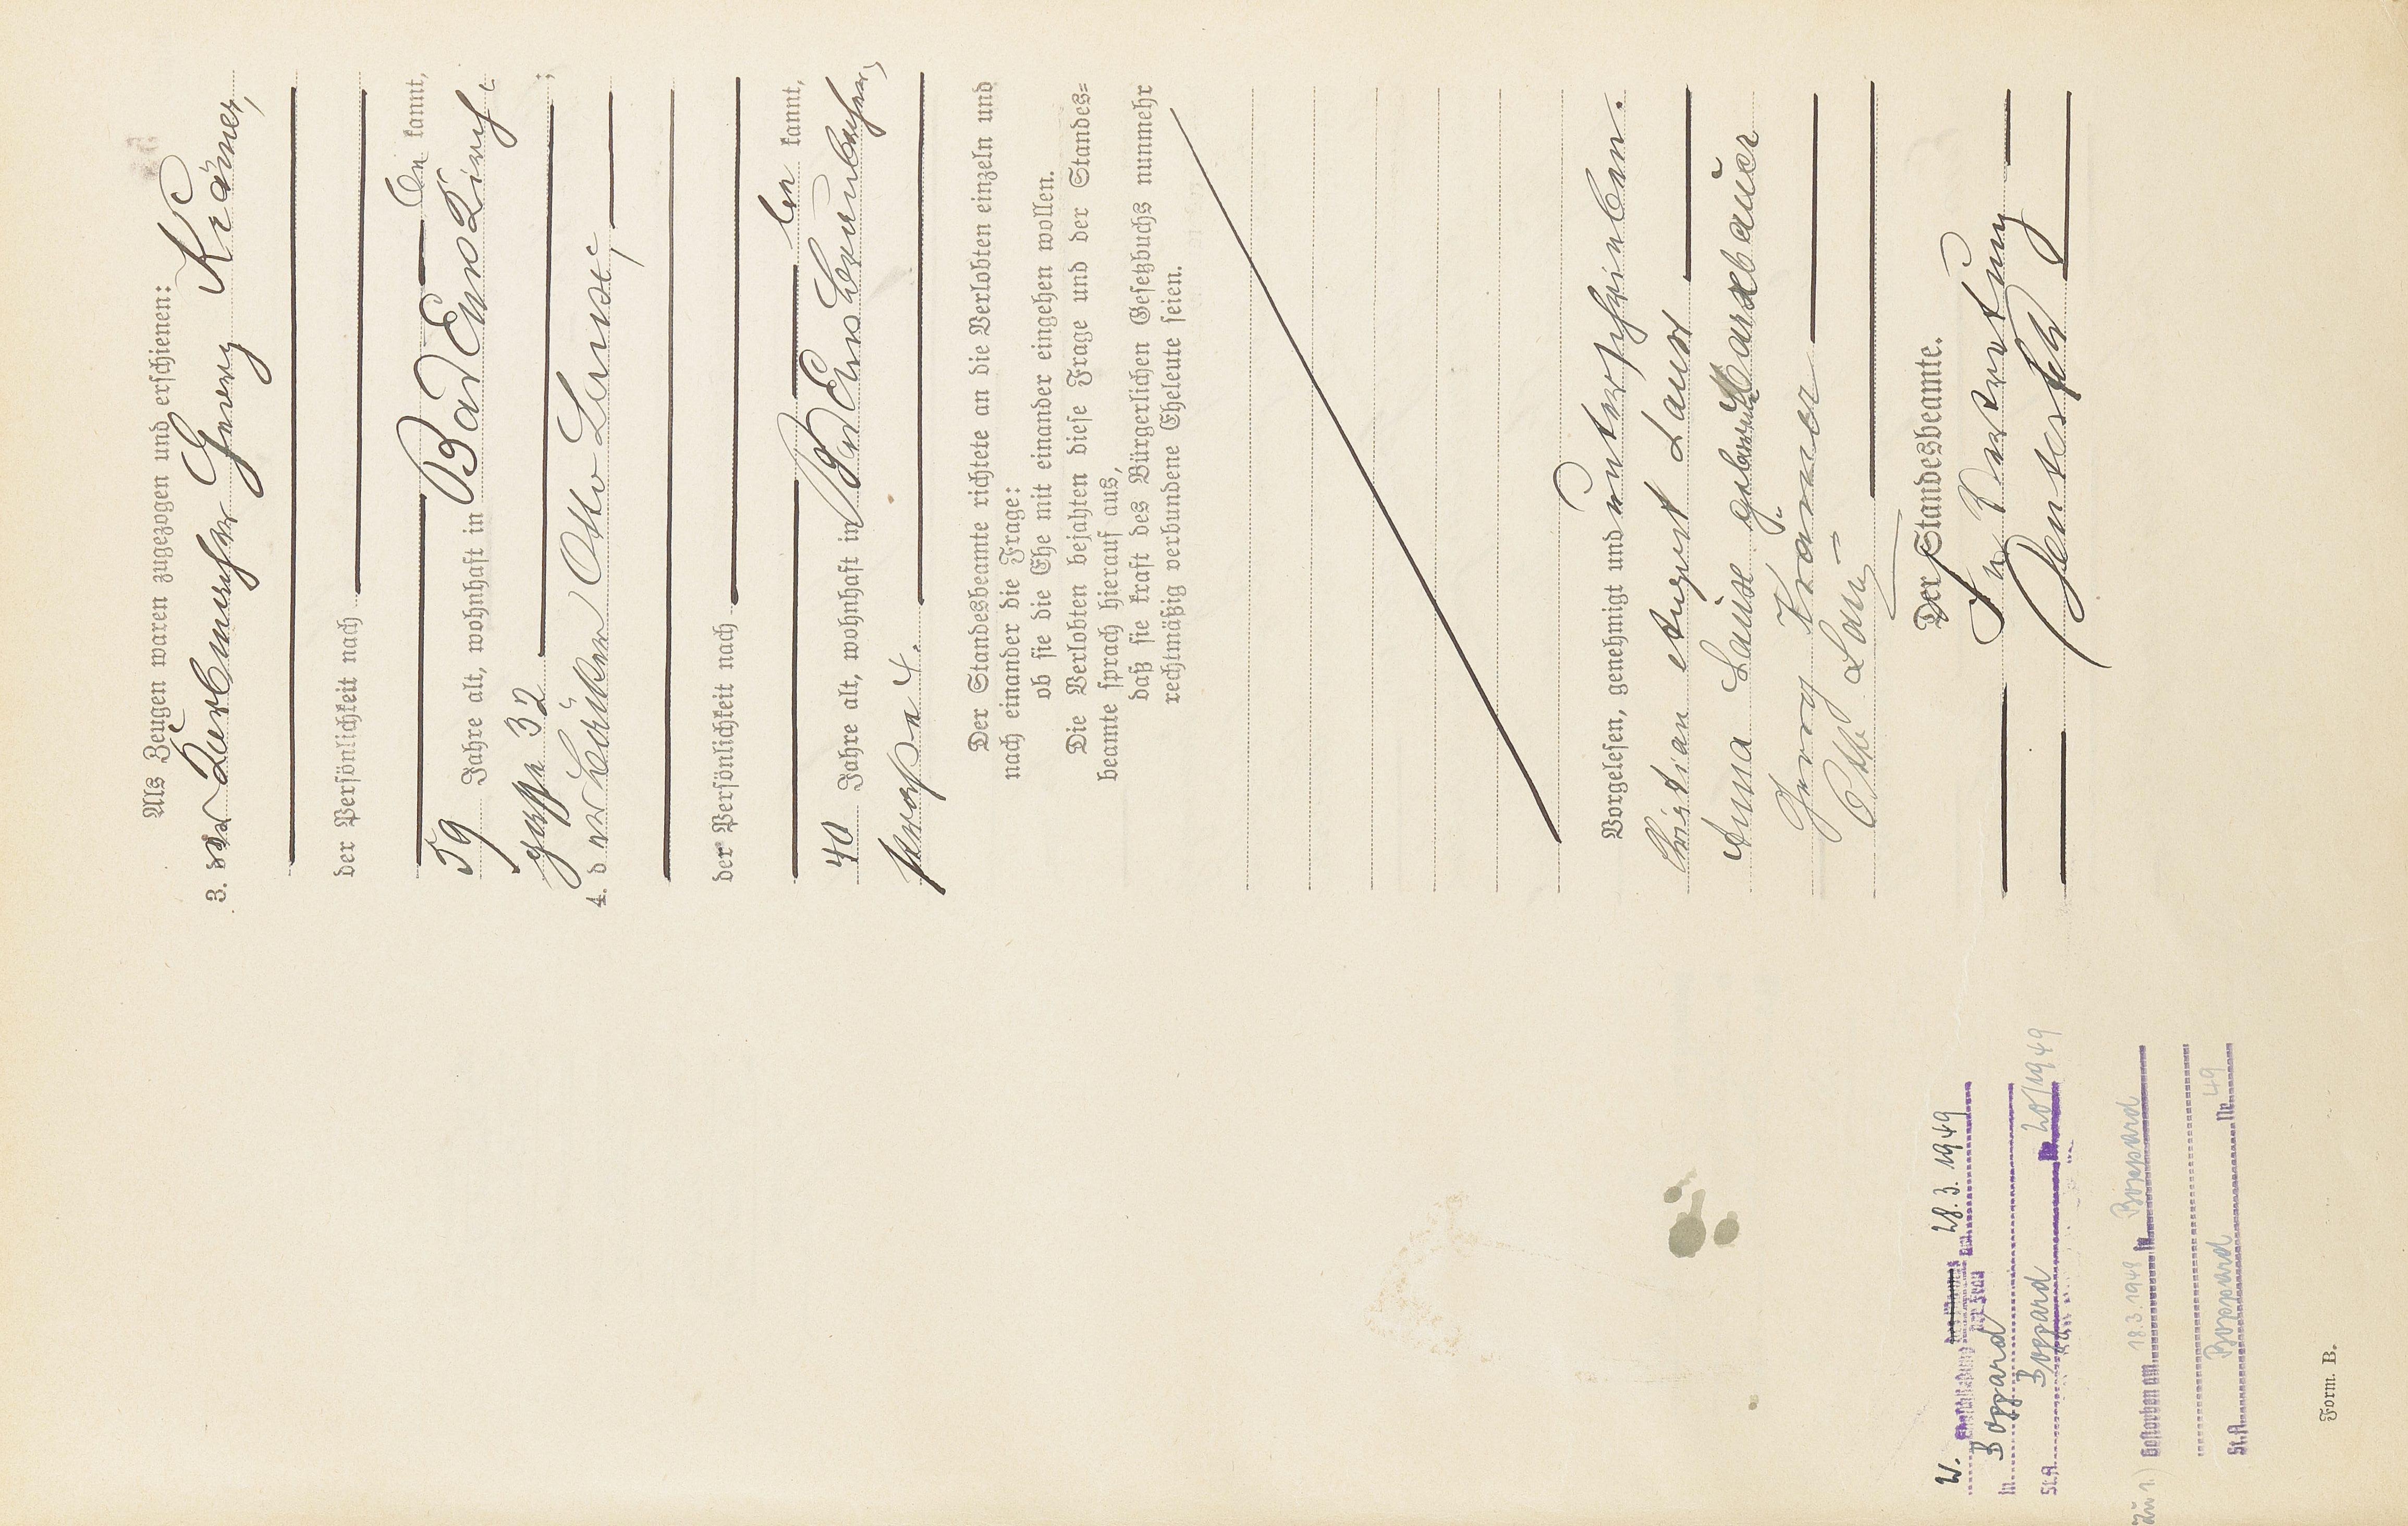 Als Zeugen waren zugezogen und erschienen:
3. der Georg Krämer,
der Persönlichkeit nach
be kannt,
59 Jahre alt, wohnhaft in Bad Ems Kirch-
gasse 32 ;
4. der Bäcker Otto
der Persönlichkeit nach
be kannt,
40 Jahre alt, wohnhaft in Bad Ems Braubacher-
strasse 4.
Der Standesbeamte richtete an die Verlobten einzeln und
nach einander die Frage:
ob sie die Ehe mit einander eingehen wollen.
Die Verlobten bejahten diese Frage und der Standes=
beamte sprach hierauf aus,
daß sie kraft des Bürgerlichen Gesetzbuchs nunmehr
rechtmäßig verbundene Eheleute seien.
Vorgelesen, genehmigt und unterschrieben.
Christian August
Anna geborene
Georg Krämer
Otto
Der Standesbeamte.
In Vertretung
W. Eheschließung des Mannes der Frau am 28.3.1949
in Boppard
St.A. Boppard Nr. 20/1949
Zu 1.) Gestorben am 18.3.1948 in Boppard
St.A. Boppard Nr. 49
Form. B.